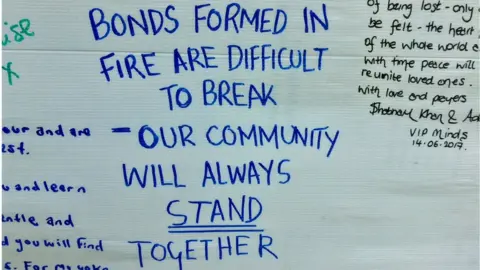 ise
x
our and are
est.
u and learn
entle and
d you will find
BONDS FORMED IN
FIRE ARE DIFFICULT
TO BREAK
- OUR COMMUNITY
WILL ALWAYS
STAND
TOGETHER
of being lost - only
be felt - the heart
of the whole world
with time peace will
reunite loved ones.
with love and prayers
Khan &
VIP Minds
14.06.2017.